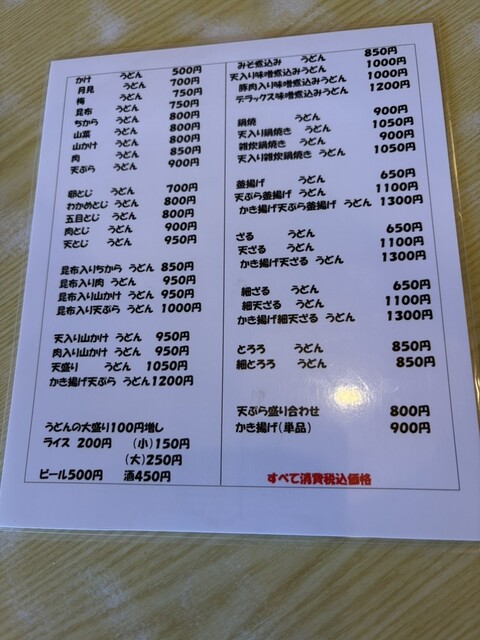 かけ うどん 500円
月見 うどん 700円
梅 うどん 750円
昆布 うどん 750円
ちから うどん 800円
山菜 うどん 800円
山かけ うどん 800円
肉 うどん 850円
天ぷら うどん 900円
卵とじ うどん 700円
わかめとじ うどん 800円
五目とじ うどん 800円
肉とじ うどん 900円
天とじ うどん 950円
昆布入りちから うどん 850円
昆布入り肉 うどん 950円
昆布入り山かけ うどん 950円
昆布入り天ぷら うどん 1000円
天入り山かけ うどん 950円
肉入り山かけ うどん 950円
天盛り うどん 1050円
かき揚げ天ぷら うどん 1200円
うどんの大盛り100円増し
ライス 200円 (小)150円
(大)250円
ビール500円 酒450円
みそ煮込み うどん 850円
天入り味噌煮込みうどん 1000円
豚肉入り味噌煮込みうどん 1000円
デラックス味噌煮込みうどん 1200円
鍋焼 うどん 900円
天入り鍋焼き うどん 1050円
雑炊鍋焼き うどん 900円
天入り雑炊鍋焼き うどん 1050円
釜揚げ うどん 650円
天ぷら釜揚げ うどん 1100円
かき揚げ天ぷら釜揚げ うどん 1300円
ざる うどん 650円
天ざる うどん 1100円
かき揚げ天ざる うどん 1300円
細ざる うどん 650円
細天ざる うどん 1100円
かき揚げ細天ざる うどん 1300円
とろろ うどん 850円
細とろろ うどん 850円
天ぷら盛り合わせ 800円
かき揚げ(単品) 900円
すべて消費税込価格